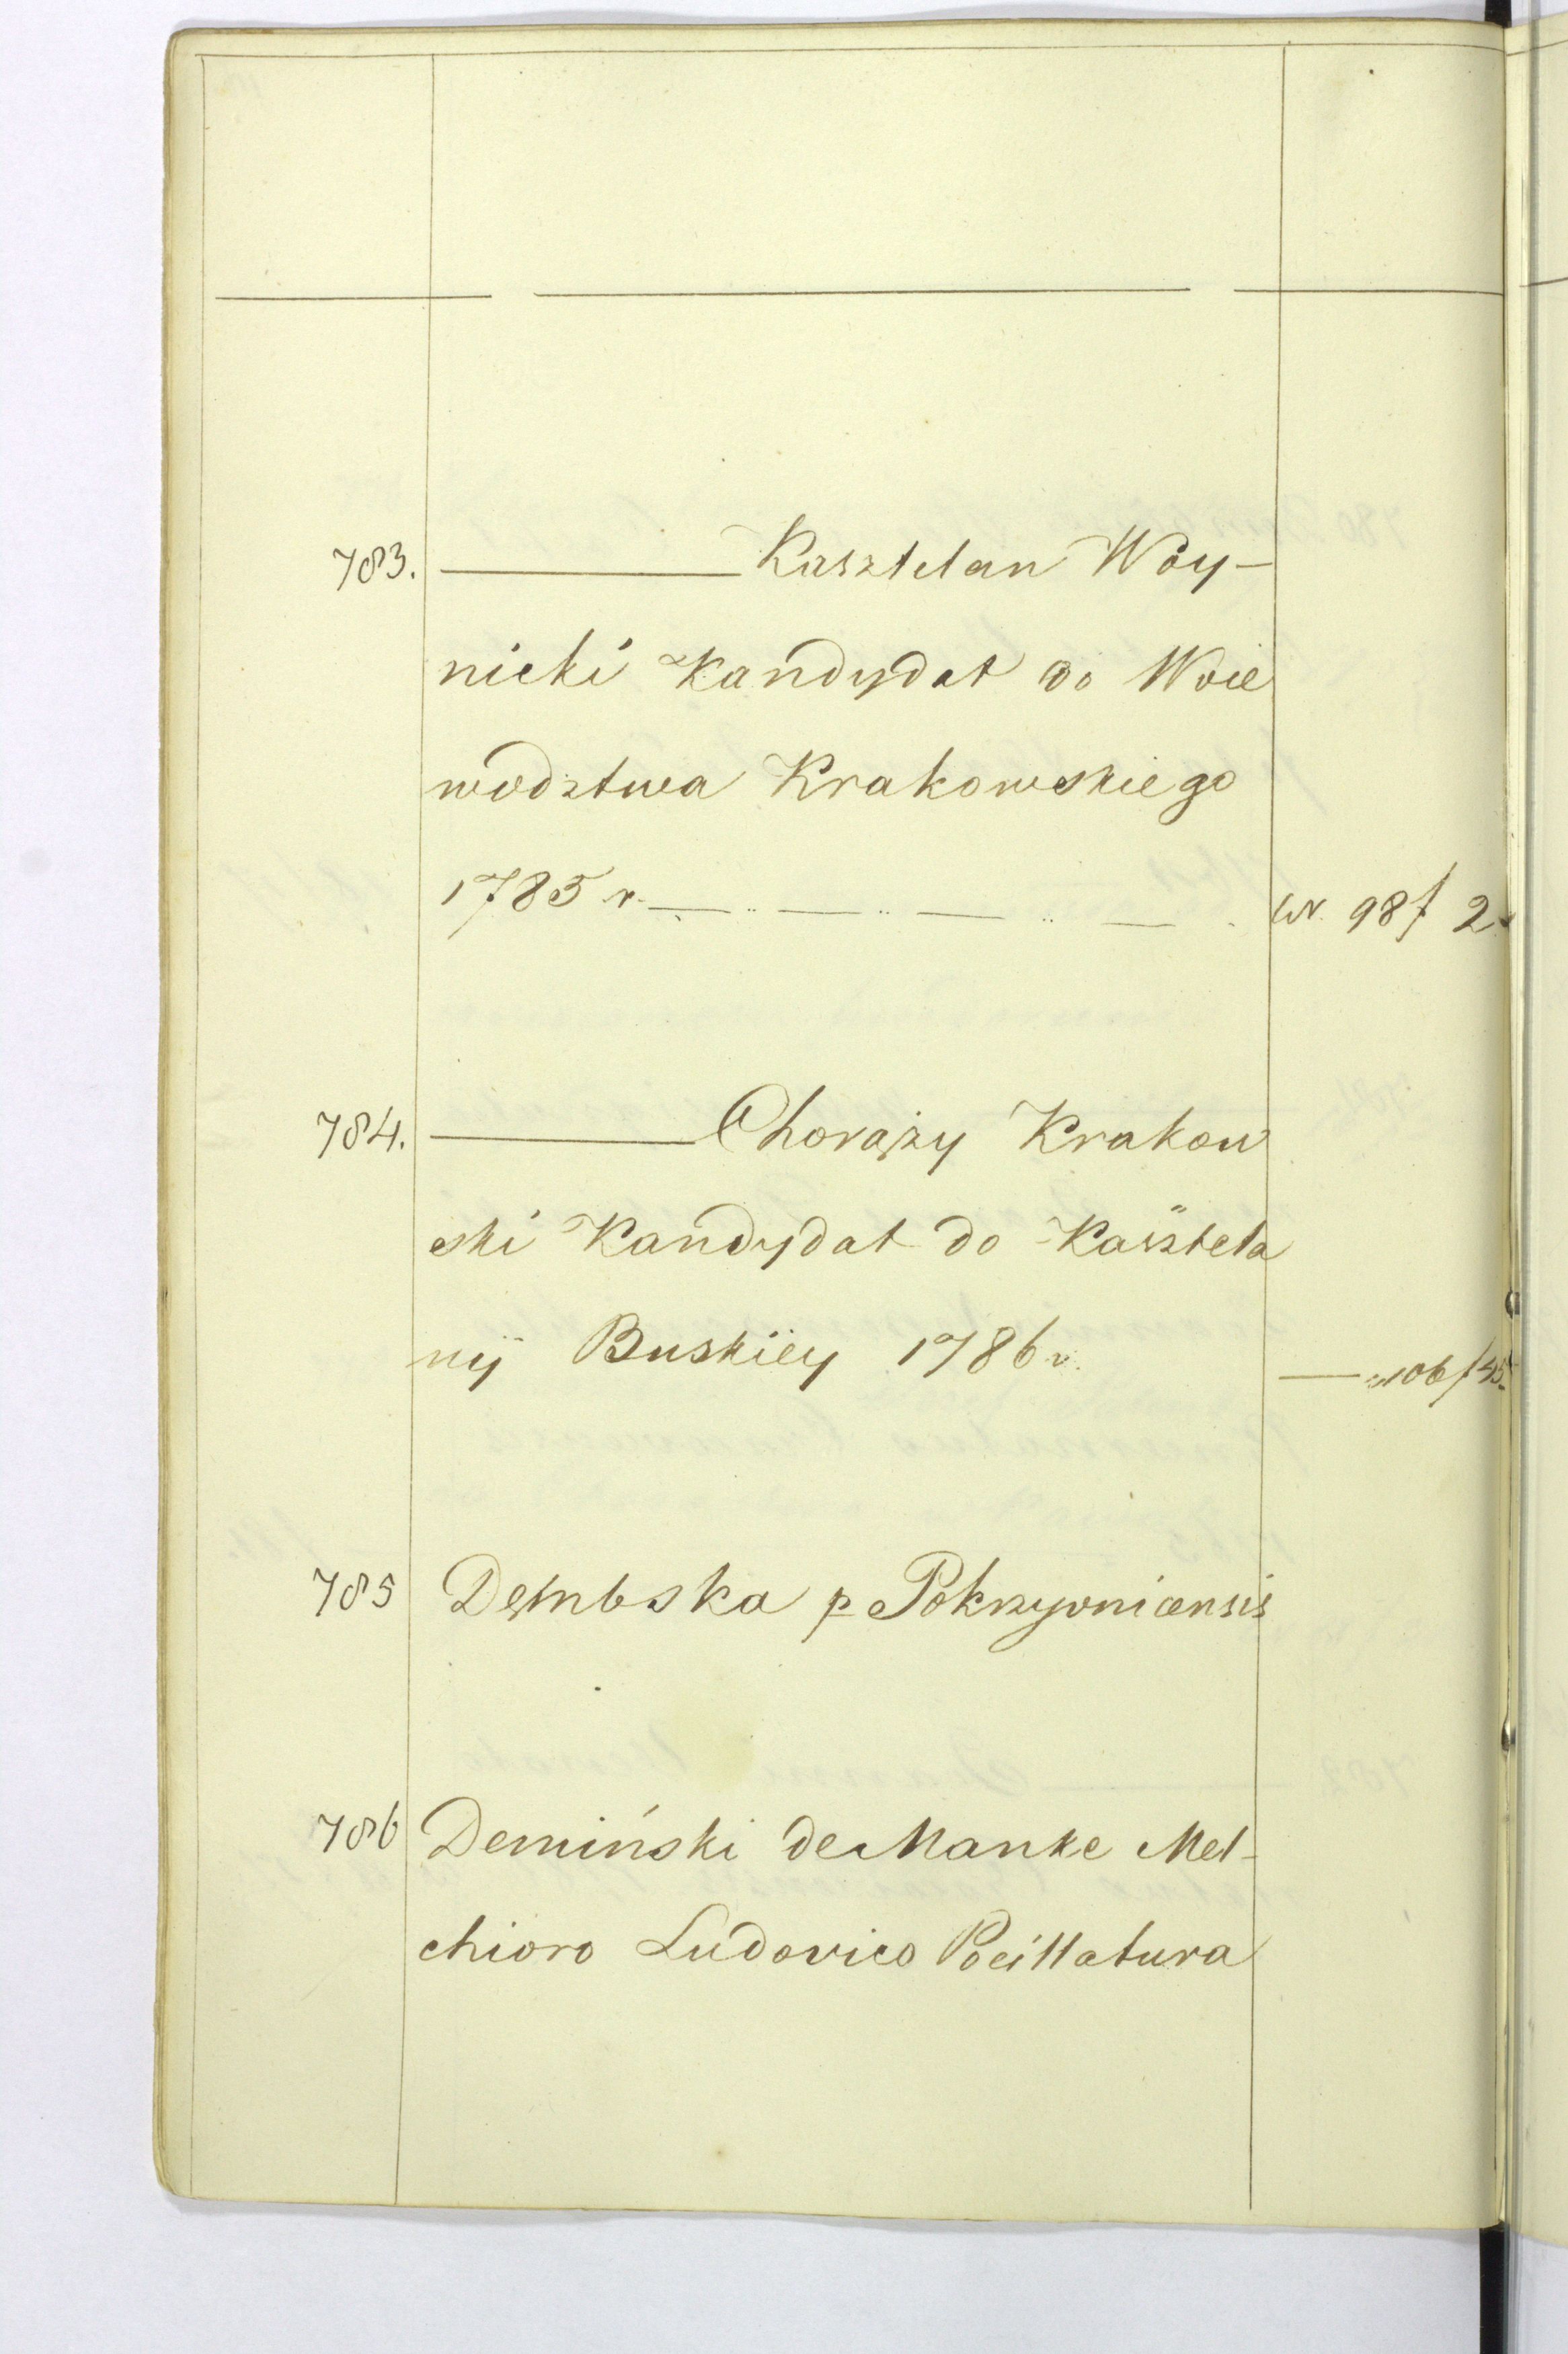 783. ——— Kasztelan Woy-
nicki Kandydat do Woie
wodztwa Krakowskiego
1785 r. — .. — .. — .. — . W. 98 f 2.
784. ——— Chorąży Krakow
ski Kandydat do Kasztela
nÿ Buskiey 1786 r. — 106 f 45
785 Dembska p Pokrzywnicensis
786 Demiński de Manke Mel-
chioro Ludovico Pocillatura